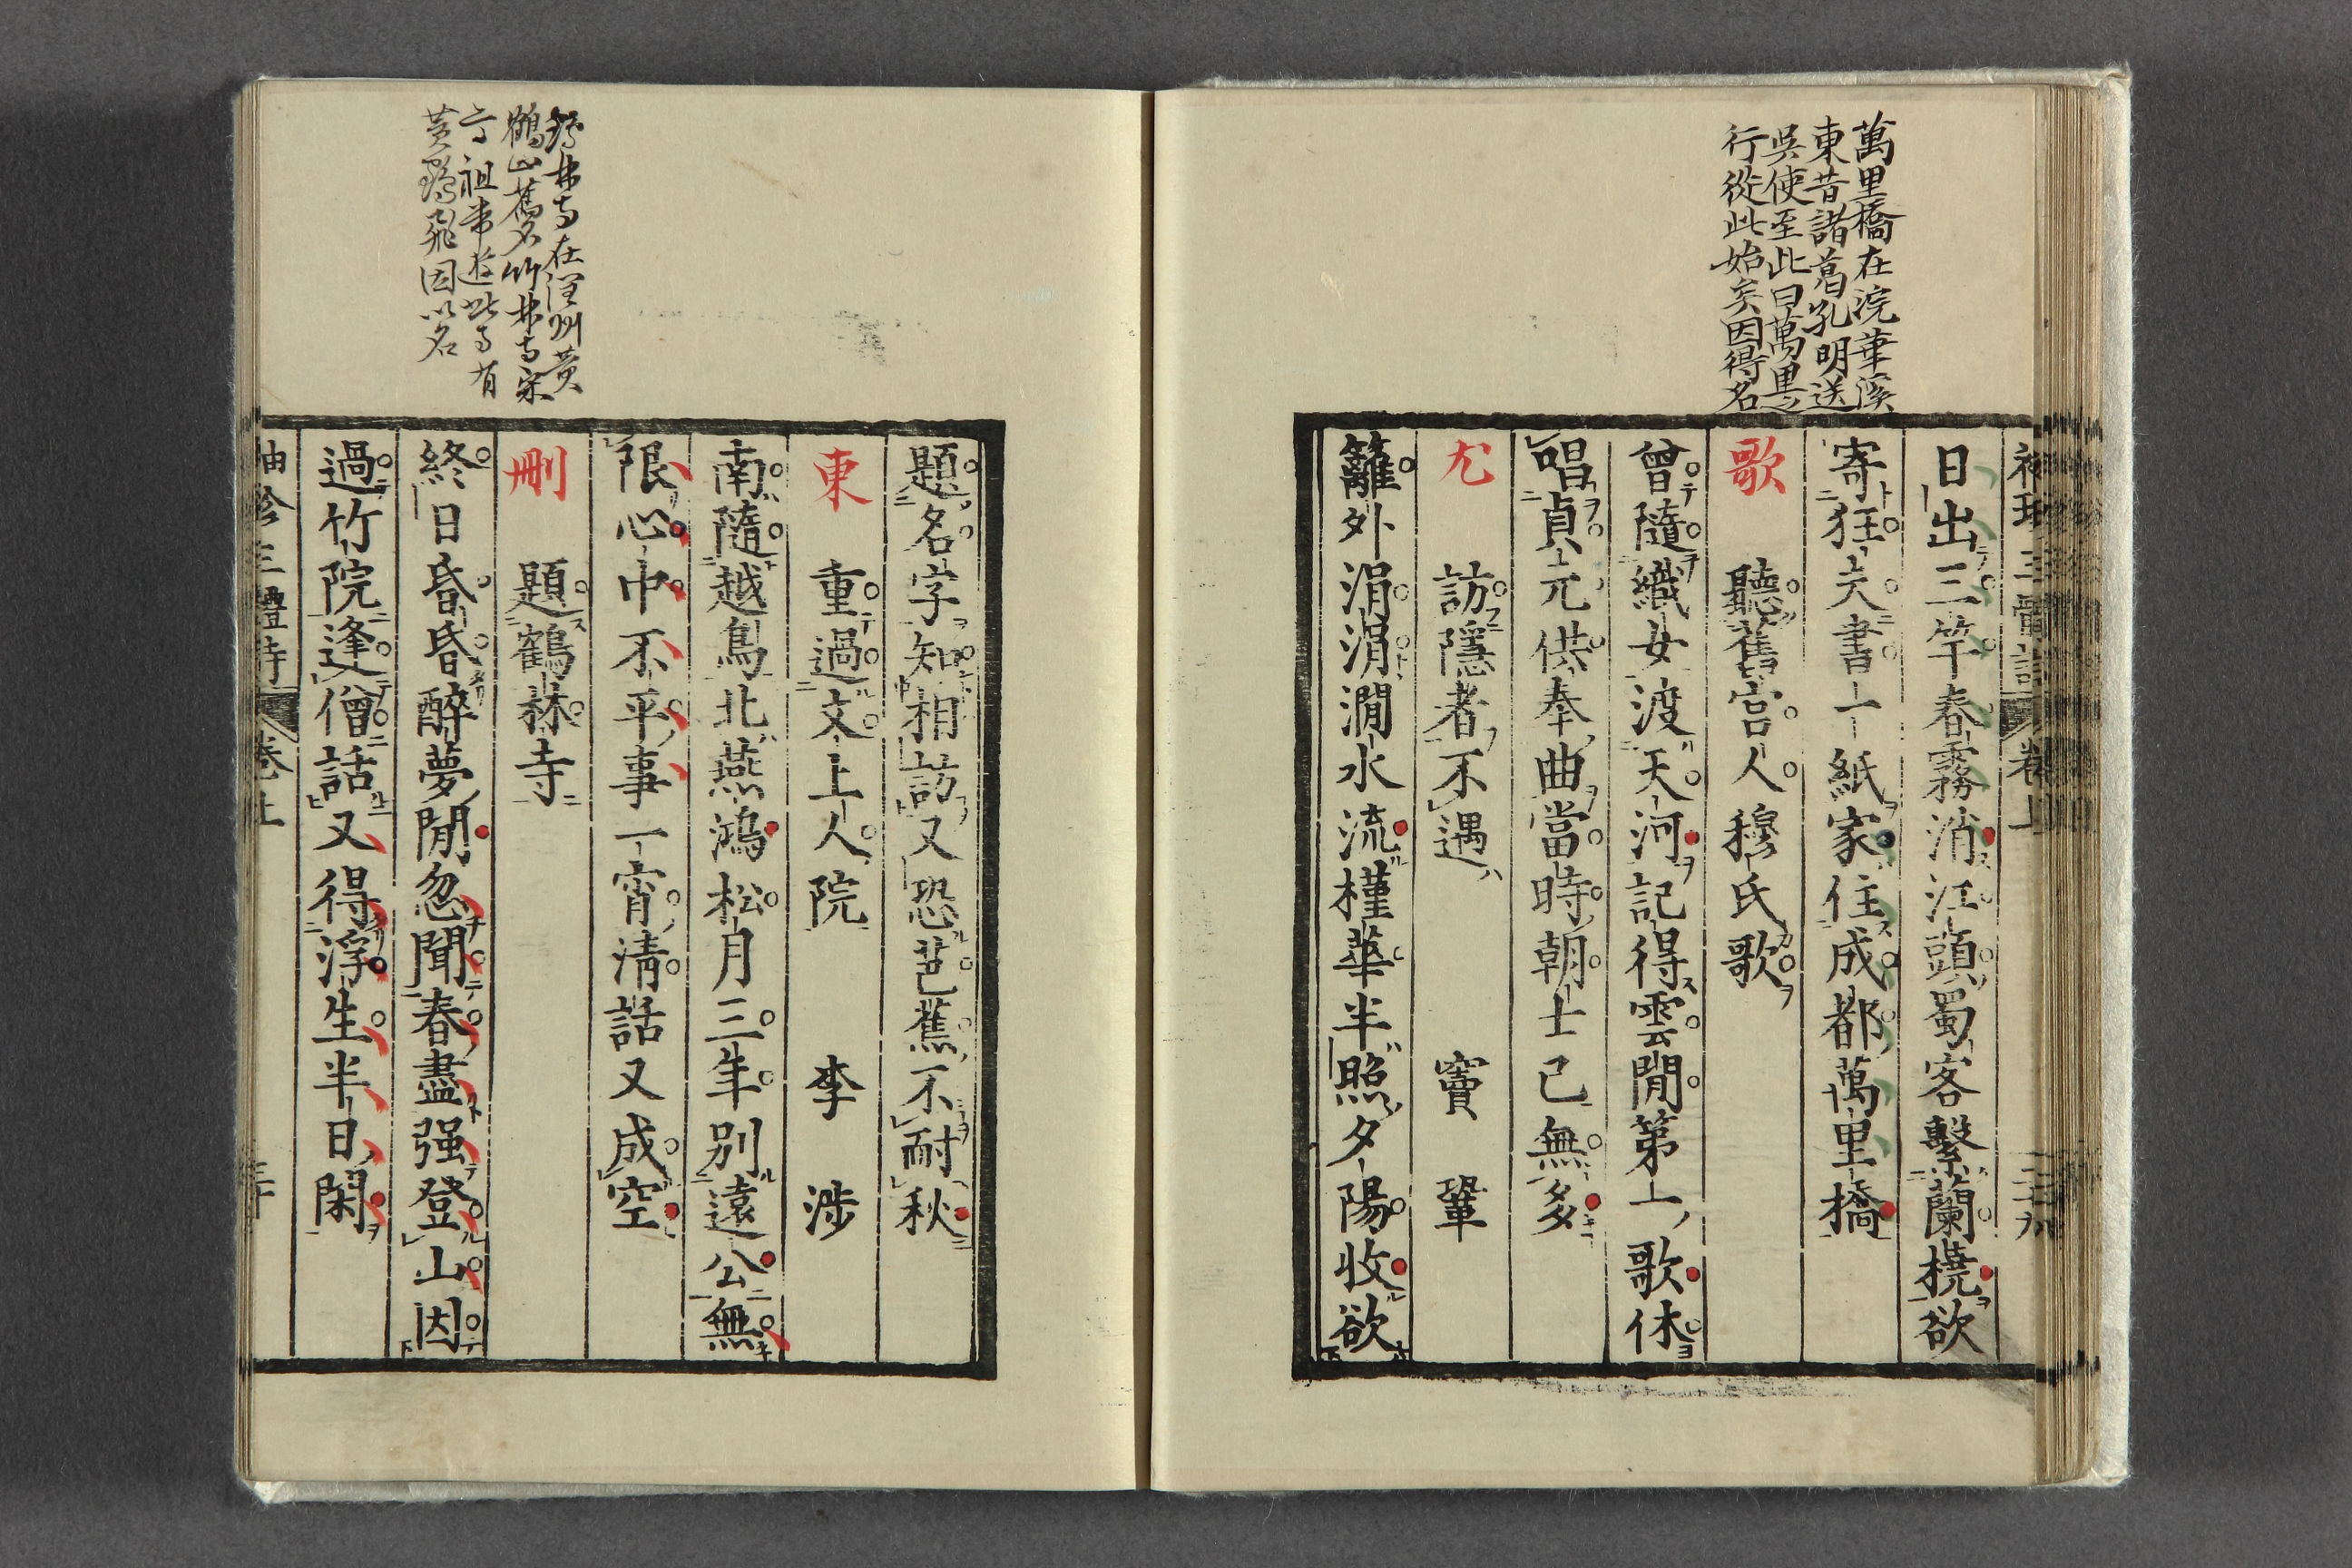 萬里橋在浣華溪
東昔諸葛孔明送
吳使至此曰萬里之
行從此始矣因得名
日出三竿春霧消江頭蜀客繫蘭橈欲
寄狂夫書一紙家住成都萬里橋
歌 聽舊宮人穆氏歌
曾隨織女渡天河記得雲間第一歌休
唱貞元供奉曲當時朝士已無多
尤 訪隱者不遇 竇鞏
籬外涓涓澗水流槿華半照夕陽收欲
題名字知相訪又恐芭蕉不耐秋
東 重過文上人院 李涉
南隨越鳥北燕鴻松月三年別遠公無
限心中不平事一宵清話又成空
刪 題鶴林寺
終日昏昏醉夢間忽聞春盡强登山因
過竹院逢僧話又得浮生半日閑
袖珍三體詩 卷上
鶴林寺在潤州黃
鶴山舊名竹林寺宋
高祖常遊此寺有
黃鶴飛因以名